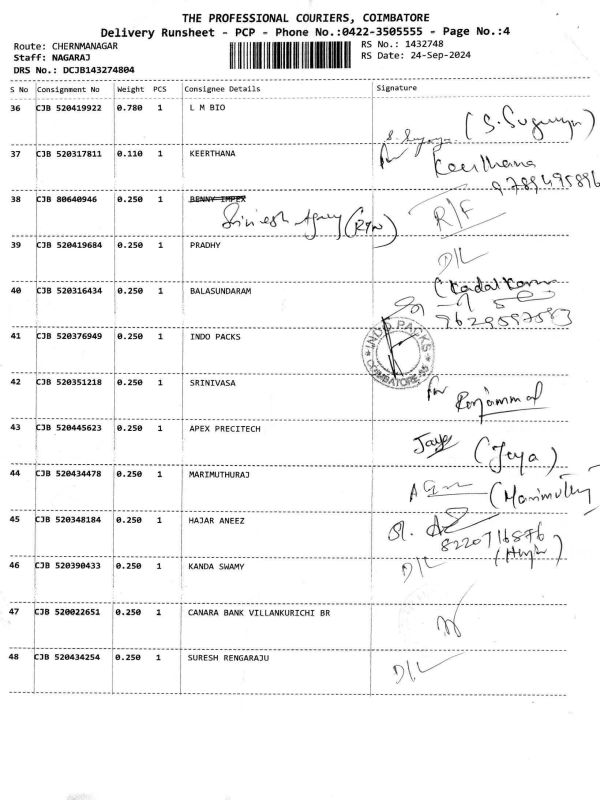 THE PROFESSIONAL COURIERS, COIMBATORE
Delivery Runsheet - PCP - Phone No.:0422-3505555 - Page No.:4
Route: CHERNMANAGAR
RS No.: 1432748
Staff: NAGARAJ
RS Date: 24-Sep-2024
DRS No.: DCJB143274804
S No Consignment No Weight PCS Consignee Details Signature
36 CJB 520419922 0.780 1 L M BIO
37 CJB 520317811 0.110 1 KEERTHANA Keerthana
9789495896
38 CJB 80640946 0.250 1 BENNY IMPEX R/F
39 CJB 520419684 0.250 1 PRADHY D/L
40 CJB 520316434 0.250 1 BALASUNDARAM
9629597583
41 CJB 520376949 0.250 1 INDO PACKS INDO PACKS COIMBATORE
42 CJB 520351218 0.250 1 SRINIVASA
43 CJB 520445623 0.250 1 APEX PRECITECH Jaya (Jeya)
44 CJB 520434478 0.250 1 MARIMUTHURAJ
45 CJB 520348184 0.250 1 HAJAR ANEEZ
8220716876
46 CJB 520390433 0.250 1 KANDA SWAMY D/L
47 CJB 520022651 0.250 1 CANARA BANK VILLANKURICHI BR
48 CJB 520434254 0.250 1 SURESH RENGARAJU D/L